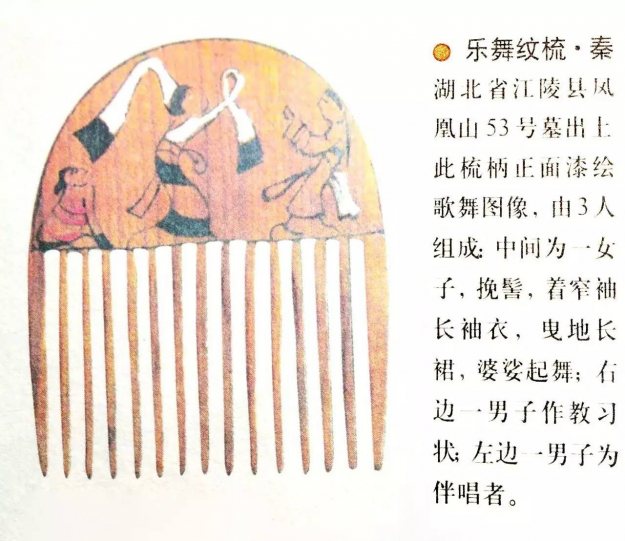 乐舞纹梳·秦
湖北省江陵县凤
凰山53号墓出土
此梳柄正面漆绘
歌舞图像，由3人
组成：中间为一女
子，挽髻，着窄袖
长袖衣，曳地长
裙，婆娑起舞；右
边一男子作教习
状；左边一男子为
伴唱者。